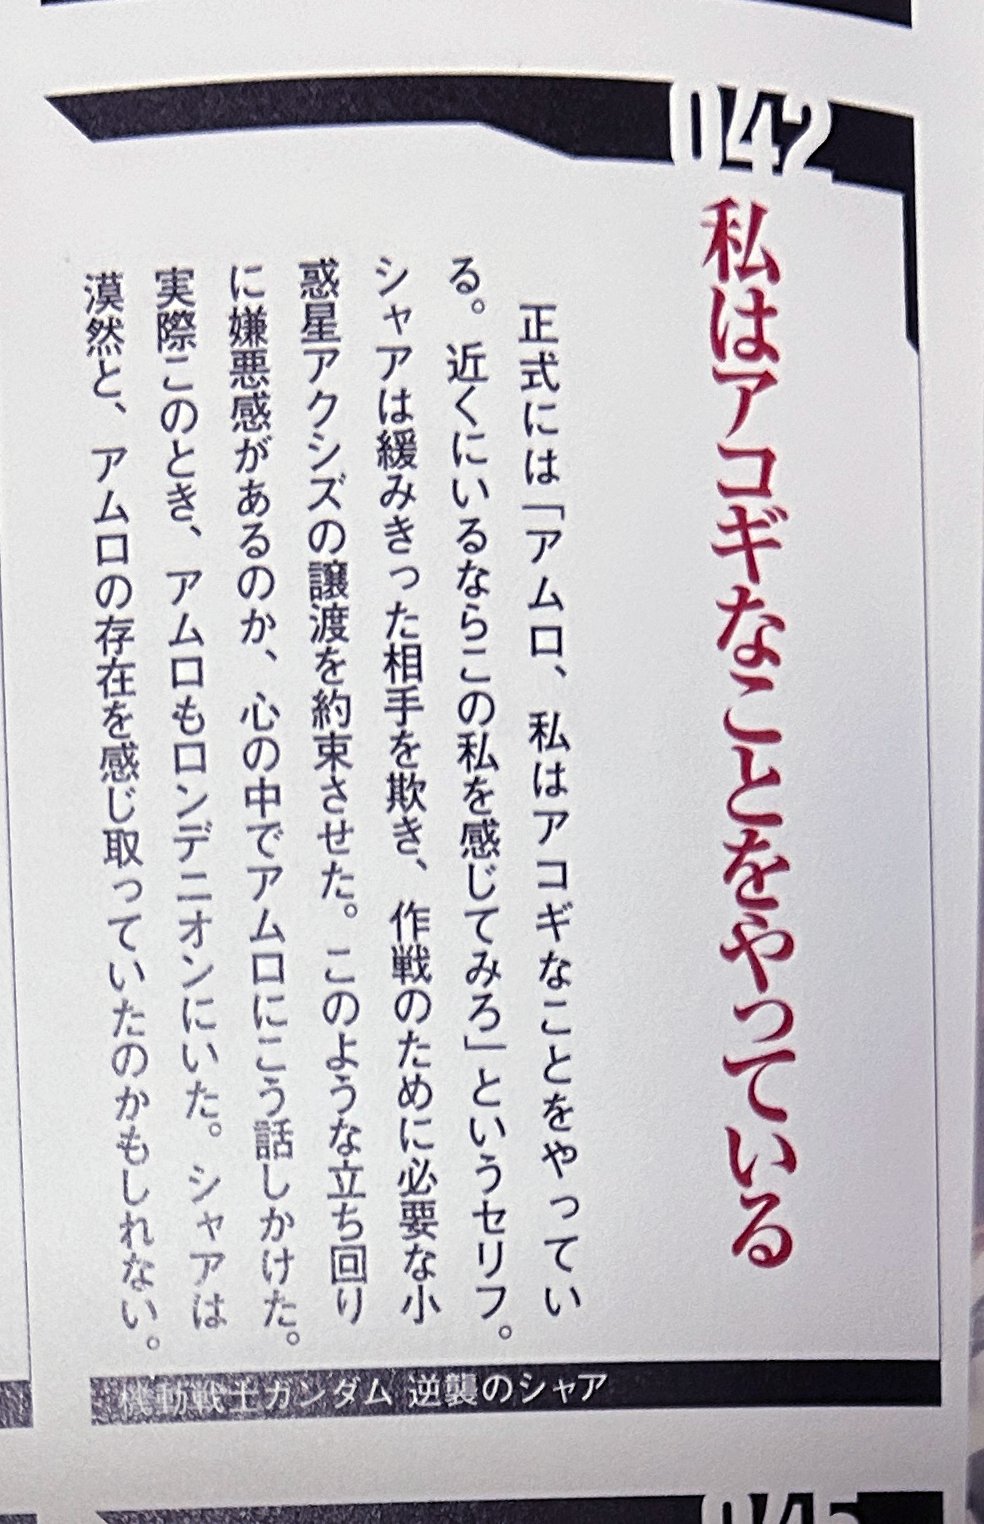 042
私はアコギなことをやっている
正式には「アムロ、私はアコギなことをやってい
る。近くにいるならこの私を感じてみろ」というセリフ。
シャアは緩みきった相手を欺き、作戦のために必要な小
惑星アクシズの譲渡を約束させた。このような立ち回り
に嫌悪感があるのか、心の中でアムロにこう話しかけた。
実際このとき、アムロもロンデニオンにいた。シャアは
漠然と、アムロの存在を感じ取っていたのかもしれない。
機動戦士ガンダム 逆襲のシャア